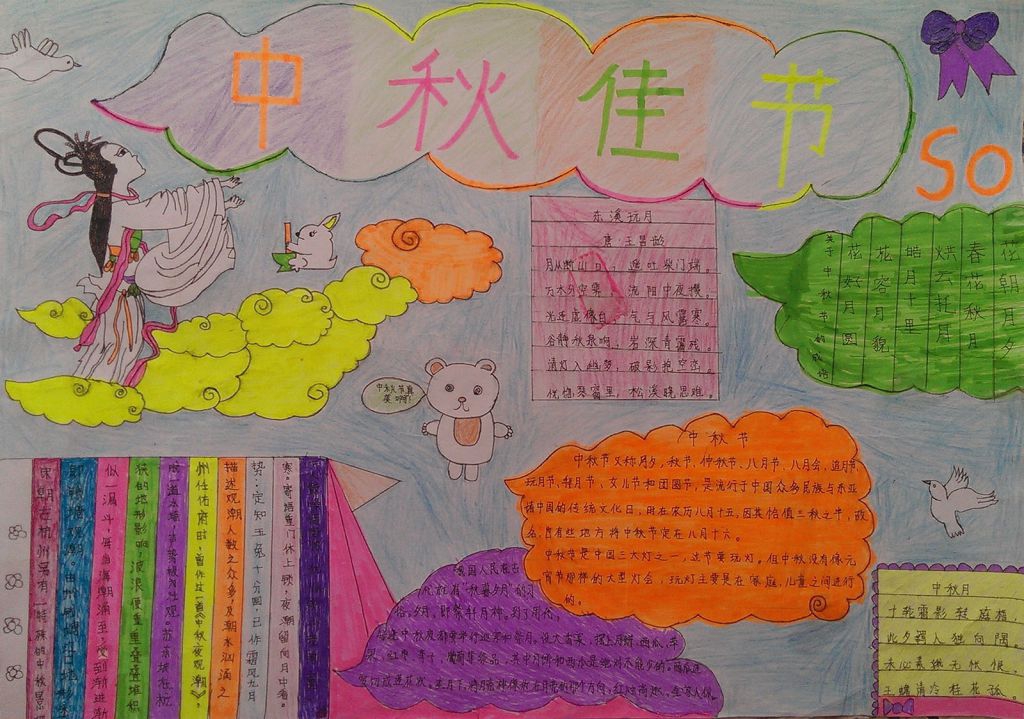 中秋佳节
SO
东溪玩月
唐·王昌龄
月从断山口，遥吐柴门端。
万木分空霁，流阴中夜攒。
光连虚像白，气与风露寒。
谷静秋泉响，岩深青霭残。
清灯入幽梦，破影抱空峦。
恍惚琴窗里，松溪晓思难。
花朝月夕
春花秋月
烘云托月
皓月千里
花容月貌
花好月圆
关于中秋节的成语
中秋节真美啊！
中秋节
中秋节又称月夕，秋节、仲秋节、八月节、八月会，追月节
玩月节、拜月节、女儿节和团圆节，是流行于中国众多民族与东亚
诸中国的传统文化日，时在农历八月十五，因其恰值三秋之半，故
名，也有些地方将中秋节定在八月十六。
中秋节是中国三大灯之一，过节要玩灯。但中秋没有像元
宵节那样的大型灯会，玩灯主要是在家庭，儿童之间进行
的。
我国人民在古
代就有"秋暮夕月"的习
俗。夕月，即祭拜月神。到了周代，
每逢中秋夜都要举行迎寒和祭月。设大香案，摆上月饼、西瓜、苹
果、红枣、李子、葡萄等祭品，其中月饼和西瓜是绝对不能少的。西瓜还
要切成莲花状。在月下，将月亮神像放在月亮的那个方向，红烛高燃，全家人依
寒。寄语重门休上钥，夜潮留向月中看。
势：定知玉兔十分圆，已作霜风九月
描述观潮人数之众多及潮水汹涌之
州任佑府时，曾作过一首《中秋夜观潮》
成一道水墙，其势极为壮观。苏东坡在杭
狭的地形影响，波浪便重重叠叠堆积
似一漏斗，每当海潮涌至，受到渐进渐
中秋月
十轮霜影转庭梧，
此夕羁人独向隅。
未必素娥无怅恨，
玉蟾清冷桂花孤。